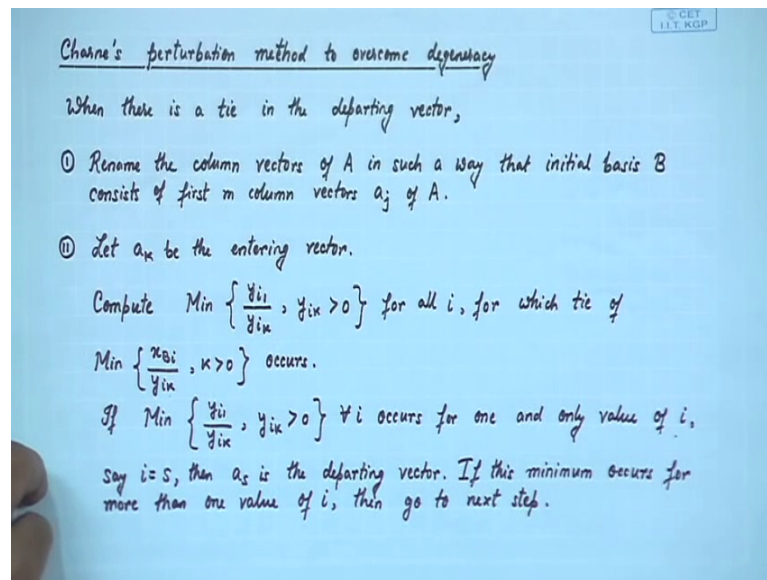 © CET
I.I.T. KGP
Charne's perturbation method to overcome degeneracy
When there is a tie in the departing vector,
(I) Rename the column vectors of A in such a way that initial basis B
consists of first m column vectors aj of A.
(II) Let aK be the entering vector.
Compute Min { yi1/yiK , yiK >0 } for all i, for which tie of
Min { xBi/yiK , K>0 } occurs.
If Min { yi1/yiK , yiK >0 } ∀ i occurs for one and only value of i,
say i= s, then as is the departing vector. If this minimum occurs for
more than one value of i, then go to next step.